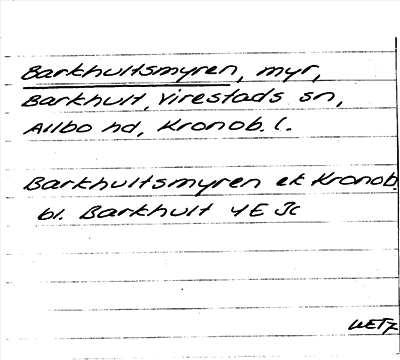 Barkhultsmyren, myr,
Barkhult, Virestads sn,
Allbo hd, Kronob. l.
Barkhultsmyren ek Kronob.
bl. Barkhult 4E 3c
WETZ